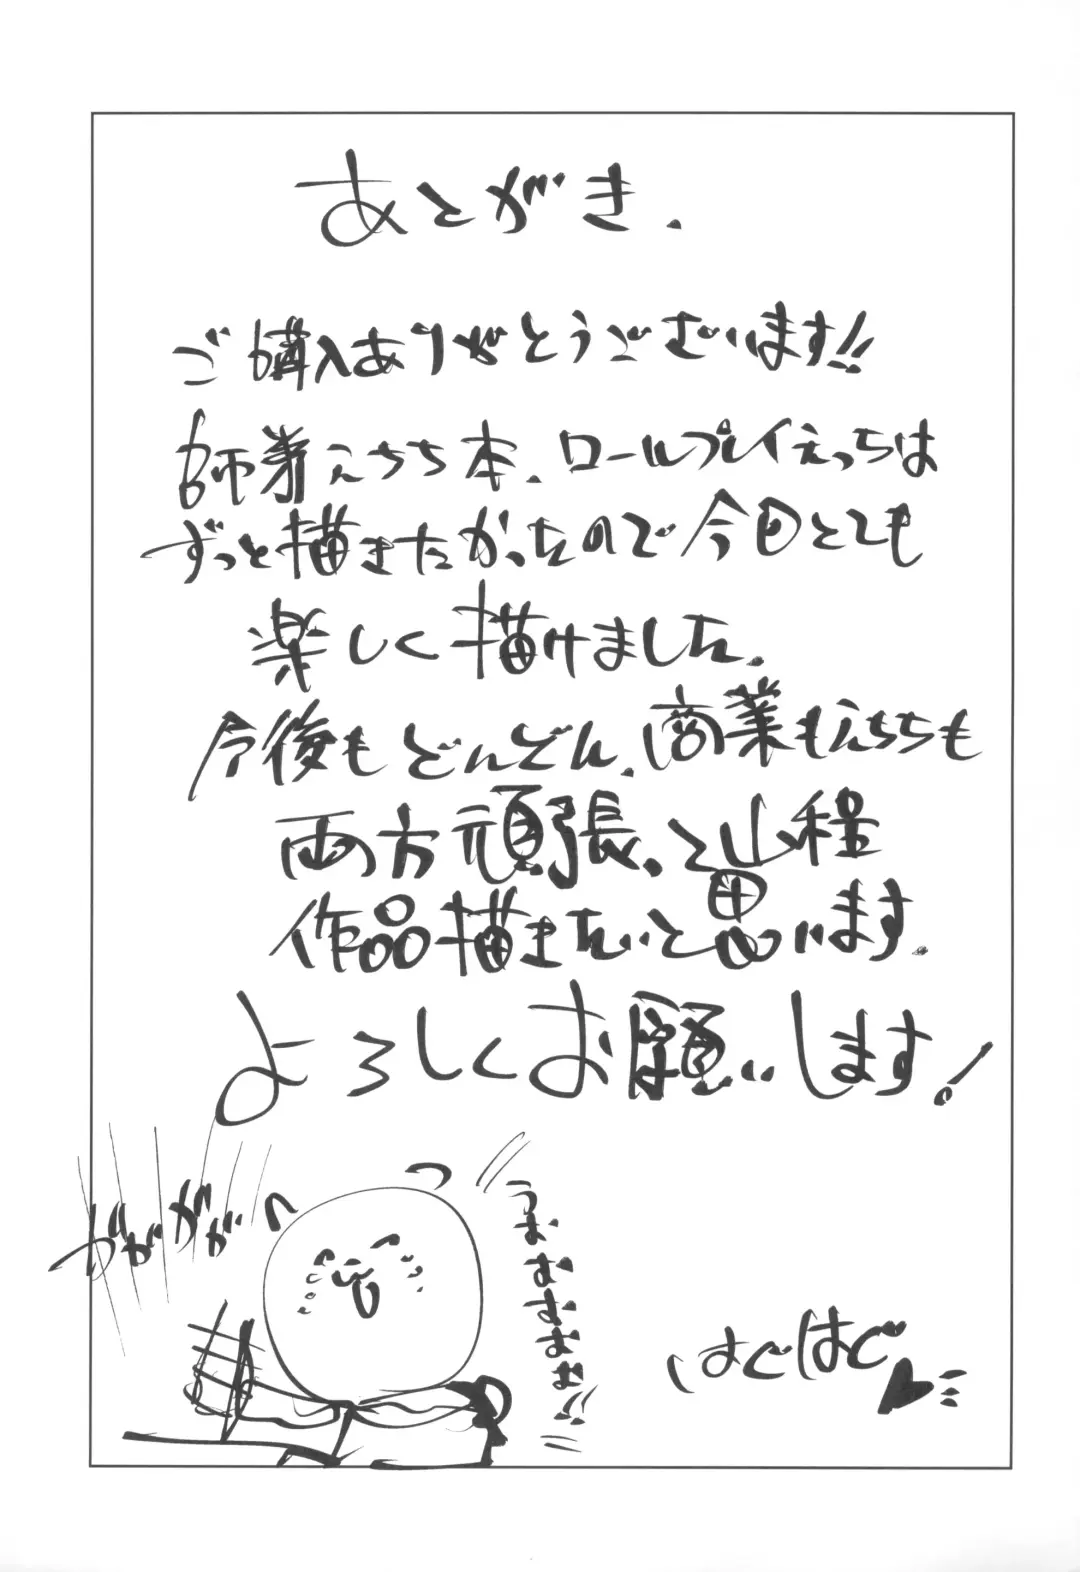 あとがき.
ご購入ありがとうございます!!
師弟えちち本、ロールプレイえっちは
ずっと描きたかったので今回とても
楽しく描けました.
今後もどんどん、商業もえちちも
両方頑張って山程
作品描きたいと思います.
よろしくお願いします!
ガガガガ
うおおおおお!!
はぐはぐ